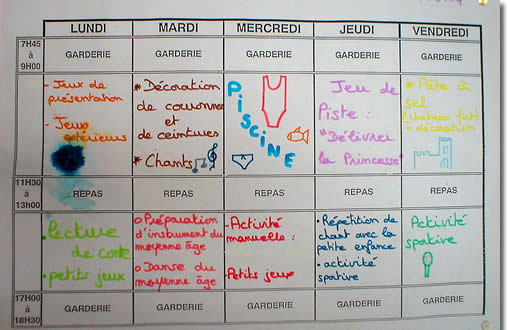 LUNDI MARDI MERCREDI JEUDI VENDREDI
7H45 à 9H00 GARDERIE GARDERIE GARDERIE GARDERIE GARDERIE
- Jeux de présentation
- Jeux extérieurs
* Décoration
de couronnes
et
de ceintures
* Chants
PISCINE
Jeu de
Piste :
* Délivrer
la Princesse
* Pâte à
sel
(chateau fort)
+ décoration
11H30 à 13H00 REPAS REPAS REPAS REPAS REPAS
• Lecture
de conte
• petits jeux
o Préparation
d'instrument du
moyenne âge
o Danse du
moyenne âge
- Activité
manuelle :
- Petits jeux
• Répétition de
chant avec la
petite enfance
• activité
sportive
Activité
sportive
17H00 à 18H30 GARDERIE GARDERIE GARDERIE GARDERIE GARDERIE